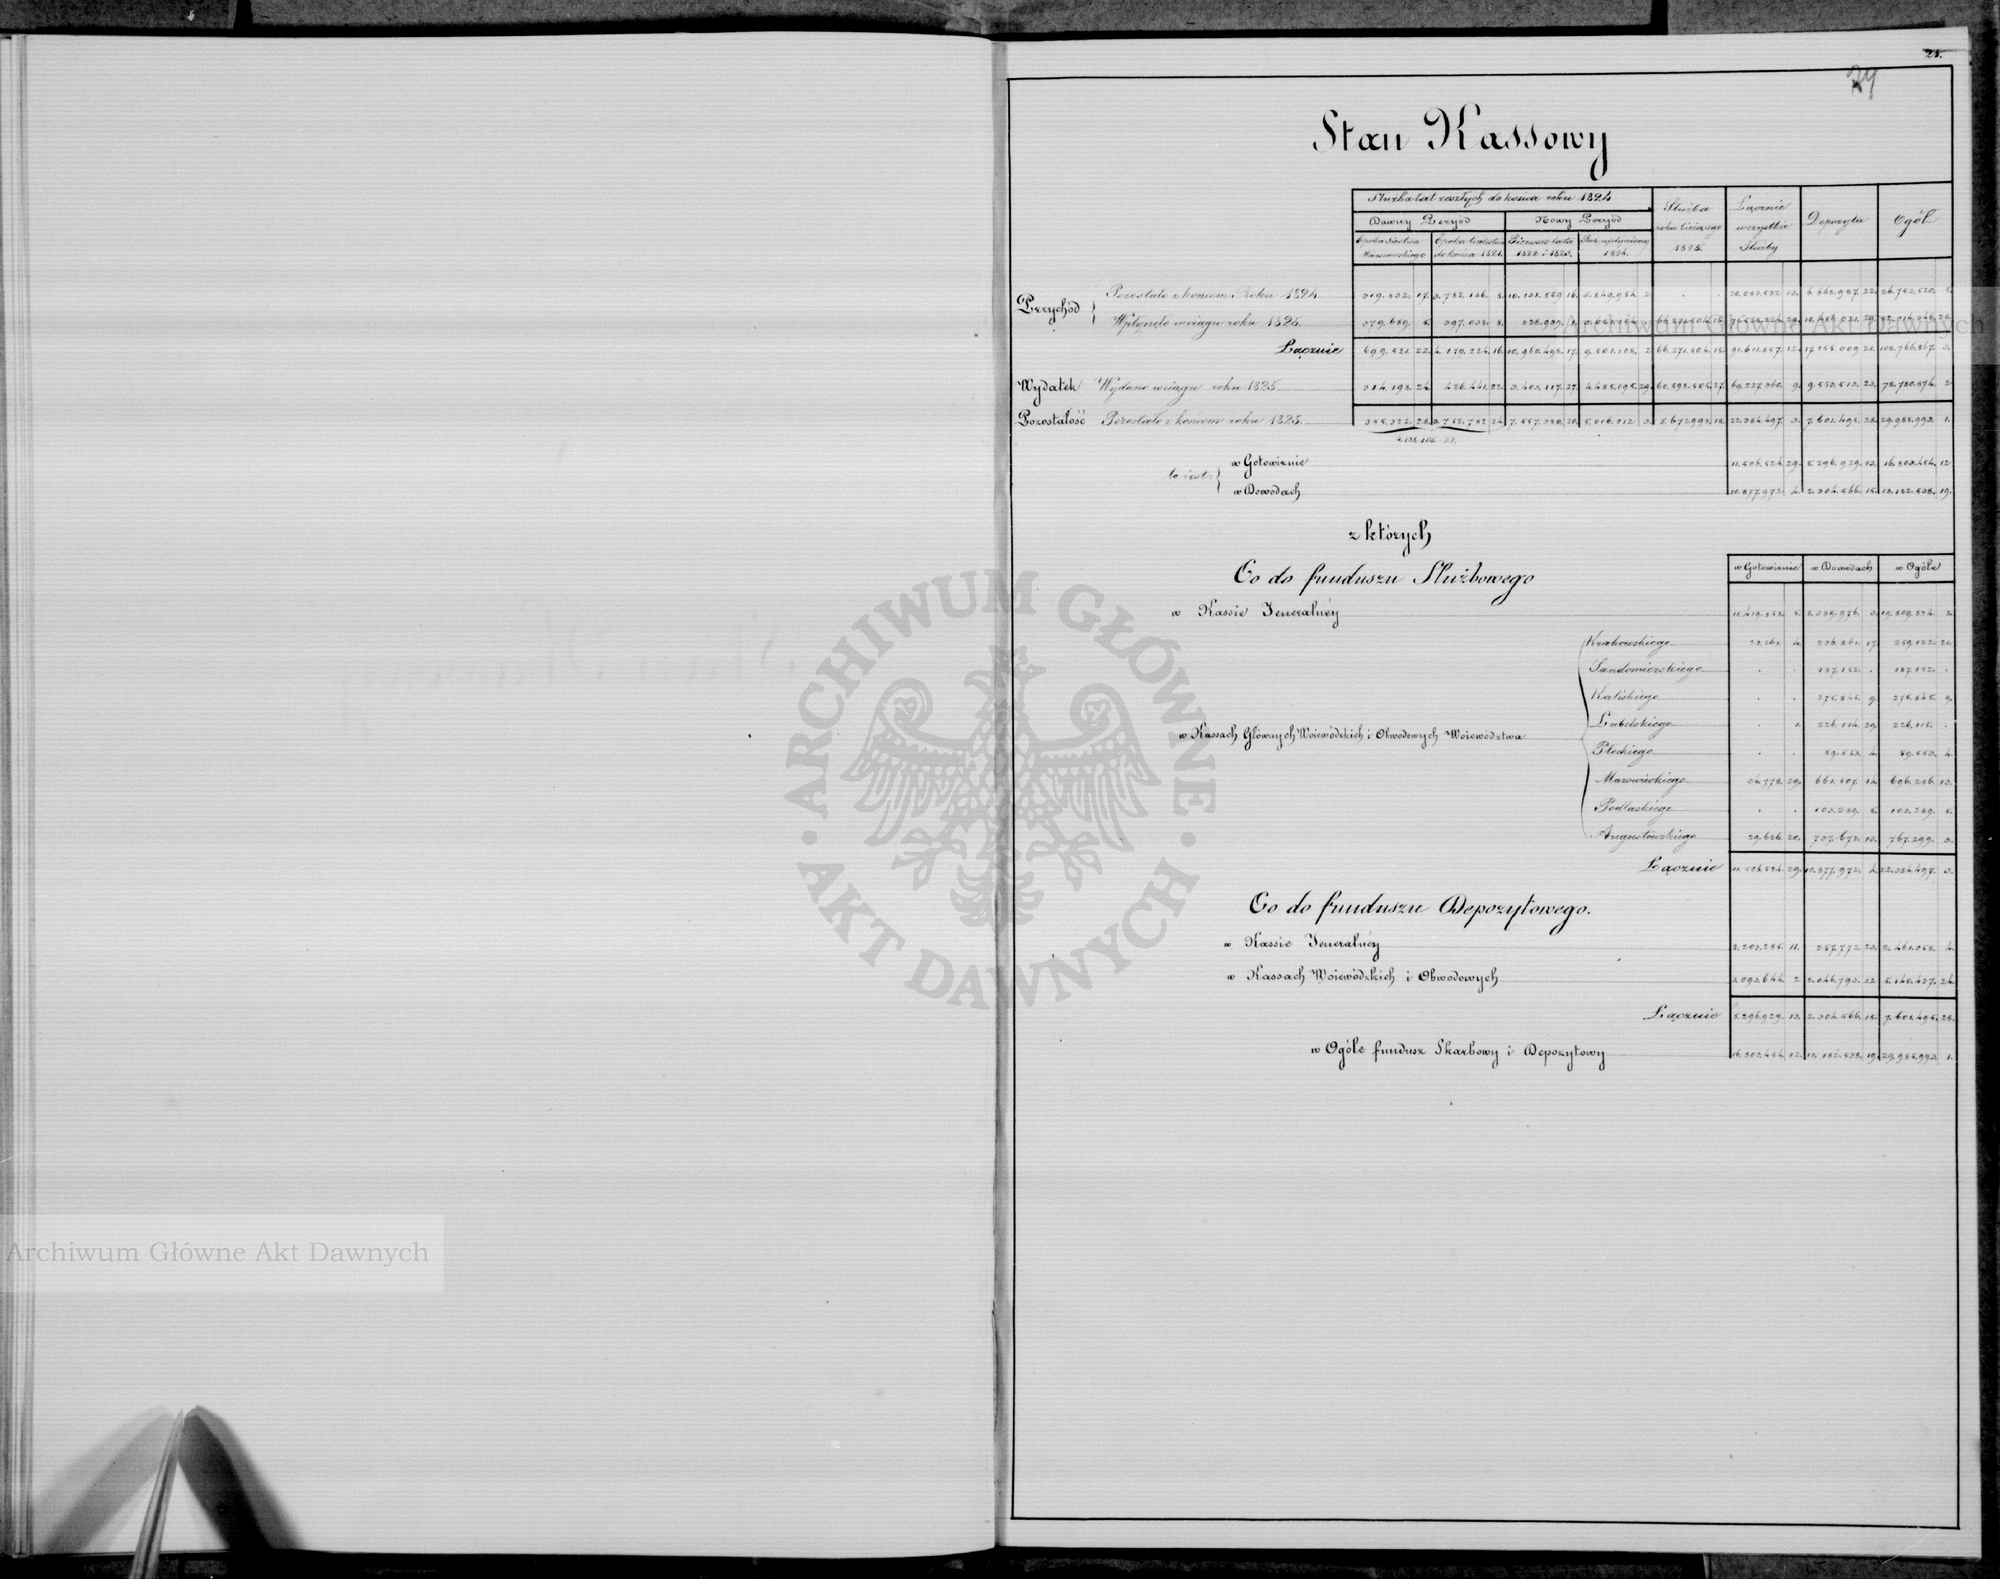 21.
74
Stan Kassowy
Służba lat zeszłych do końca roku 1824
Służba roku bieżącego 1825.
Łącznie wszystkie Służby
Depozyta
Ogół
Dawny Peryod
Nowy Peryod
Epoka Xięstwa Warszawskiego
Epoka Królestwa do końca 1821.
Pierwsze lata 1822 i 1823.
Rok upłyniony 1824.
Przychód
Pozostało z końcem Roku 1824
319.832. 17. 3.782.186. 8. 10.131.559 16. 5.849.954. 2. 20.083.532 13. 6.668.987. 22. 26.752.520. 5.
Wpłynęło w ciągu roku 1825.
379.689. 5. 397.038. 8. 828.939. 1.
Łącznie
699.521. 22. 4.179.224. 16. 10.960.498. 17. 9.501.108. 2. 66.271.504. 15. 91.611.857. 12. 17.155.009 21. 108.766.867. 3.
Wydatek
Wydano w ciągu roku 1825
314.198. 24. 426.441. 22. 3.403.117. 27. 4.485.095. 29. 60.598.505. 27. 69.227.360. 9. 9.553.513. 23. 78.780.874. 2.
Pozostałość
Pozostało z końcem roku 1825.
385.322. 28. 3.752.782 24. 7.557.380. 20. 5.016.012 3. 5.672.998. 18. 22.384.497. 3. 7.601.495. 28. 29.985.993. 1.
4.138.105. 22.
to iest:
w Gotowiznie
11.506.524. 29. 5.296.929. 13. 16.803.454. 12
w Dowodach
10.877.972. 4. 2.304.566. 15. 13.182.538. 19.
z których
w Gotowiznie
w Dowodach
w Ogóle
Co do funduszu Służbowego
w Kassie Jeneralnéy
11.419.858. 5. 8.389.976. 3. 19.809.834. 8.
w Kassach Głównych Woiewódzkich i Obwodowych Woiewództwa
Krakowskiego
22.261. 4. 236.861. 17. 259.122. 21.
Sandomierskiego
187.152. 187.152.
Kaliskiego
275.845. 9. 275.845. 9.
Lubelskiego
1. 226.114. 29. 226.115.
Płockiego
59.553. 4. 59.553. 4.
Mazowieckiego
34.778. 29. 661.507. 14. 696.286. 13.
Podlaskiego
103.289. 5. 103.289. 5.
Augustowskiego
29.626. 20. 737.672. 13. 767.299. 3.
Łącznie
11.506.524. 29. 10.877.972. 4. 22.384.497. 3.
Co do funduszu Depozytowego.
w Kassie Jeneralnéy
2.203.285. 11. 257.772. 23. 2.461.058. 4.
w Kassach Woiewódzkich i Obwodowych
3.093.644. 2 2.046.793. 22 5.140.437. 24.
Łącznie
5.296.929. 13. 2.304.566. 15. 7.601.495. 28.
w Ogóle fundusz Skarbowy i Depozytowy
16.803.454. 12. 13.182.538. 19. 29.985.993. 1.
ARCHIWUM GŁÓWNE
AKT DAWNYCH
Archiwum Główne Akt Dawnych
Archiwum Główne Akt Dawnych